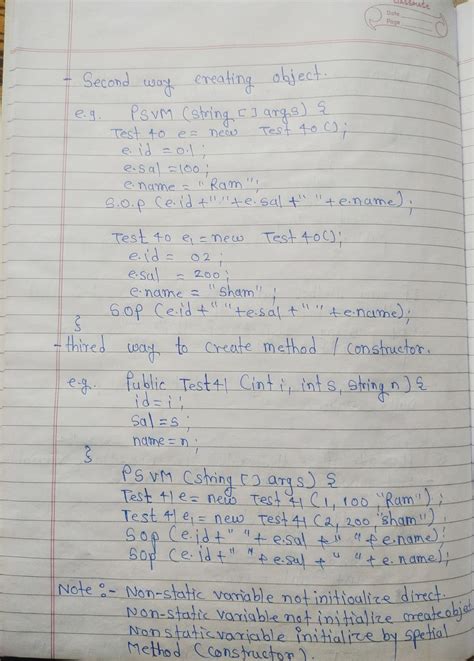 classmate
Date
Page
- Second way creating object.
e.g. PSVM (string [] args) {
Test 40 e = new Test 40 ();
e.id = 0.1;
e.sal = 100;
e.name = "Ram";
S.O.P (e.id +" "+e.sal +" "+e.name);
Test 40 e1 = new Test 40();
e.id = 02;
e.sal = 200;
e.name = "Sham";
S.OP (e.id +" "+e.sal +" "+e.name);
}
- thired way to create method / constructor.
e.g. Public Test41 (int i, int s, string n) {
id = i;
sal = s;
name = n;
}
PSVM (string [] args) {
Test 41 e = new Test 41 (1, 100 "Ram");
Test 41 e1 = new Test 41 (2, 200, "sham");
SOP (e.id +" "+e.sal +" "+e.name);
SOP (e.id +" "+e.sal +" "+e.name);
Note :- Non-static variable not initioalize direct.
Non-static variable not initialize create object
Non static variable initialize by spetial
Method (constructor).